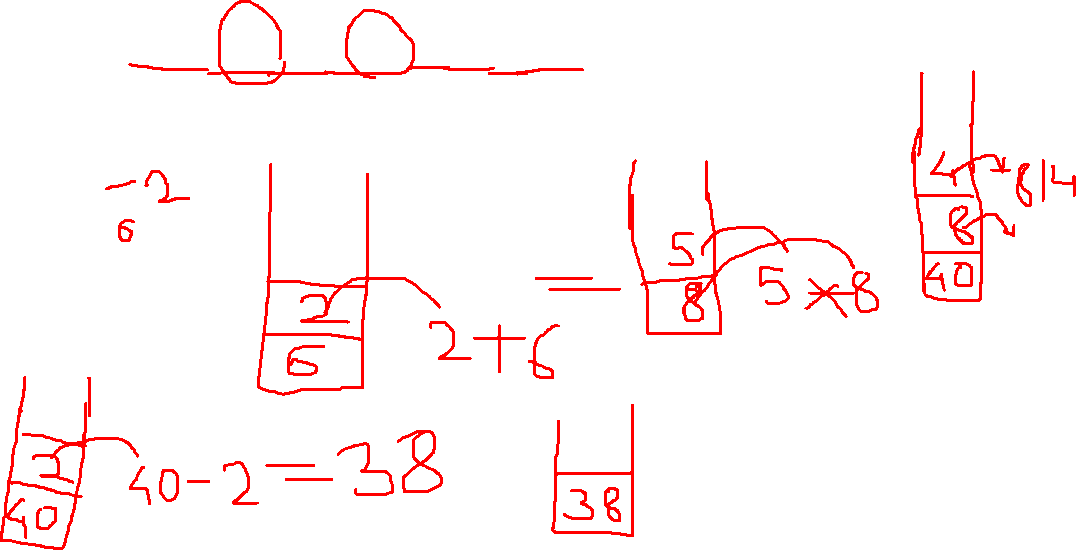 -2
6
2
6
2+6
=
5
8
5×8
4
8
40
8/4
2
40
40-2=38
38